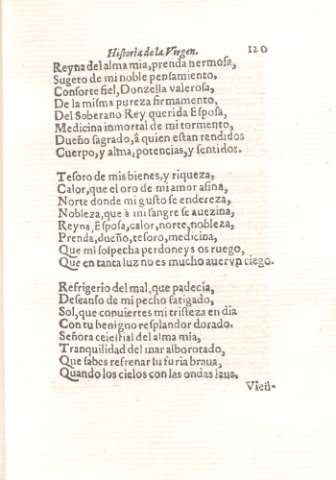 Historia de la Virgen. 120
Reyna del alma mia, prenda hermosa,
Sugeto de mi noble pensamiento,
Consorte fiel, Donzella valerosa,
De la misma pureza firmamento,
Del Soberano Rey querida Esposa,
Medicina inmortal de mi tormento,
Dueño sagrado, â quien estan rendidos
Cuerpo, y alma, potencias, y sentidos.
Tesoro de mis bienes, y riqueza,
Calor, que el oro de mi amor afina,
Norte donde mi gusto se endereza,
Nobleza, que â mi sangre se auezina,
Reyna, Esposa, calor, norte, nobleza,
Prenda, dueño, tesoro, medicina,
Que mi sospecha perdoneys os ruego,
Que en tanta luz no es mucho auer vn ciego.
Refrigerio del mal, que padecia,
Descanso de mi pecho fatigado,
Sol, que conuierres mi tristeza en dia
Con tu benigno resplandor dorado.
Señora celestial del alma mia,
Tranquilidad del mar alborotado,
Que sabes refrenar su furia braua,
Quando los cielos con las ondas laua,
Vien-